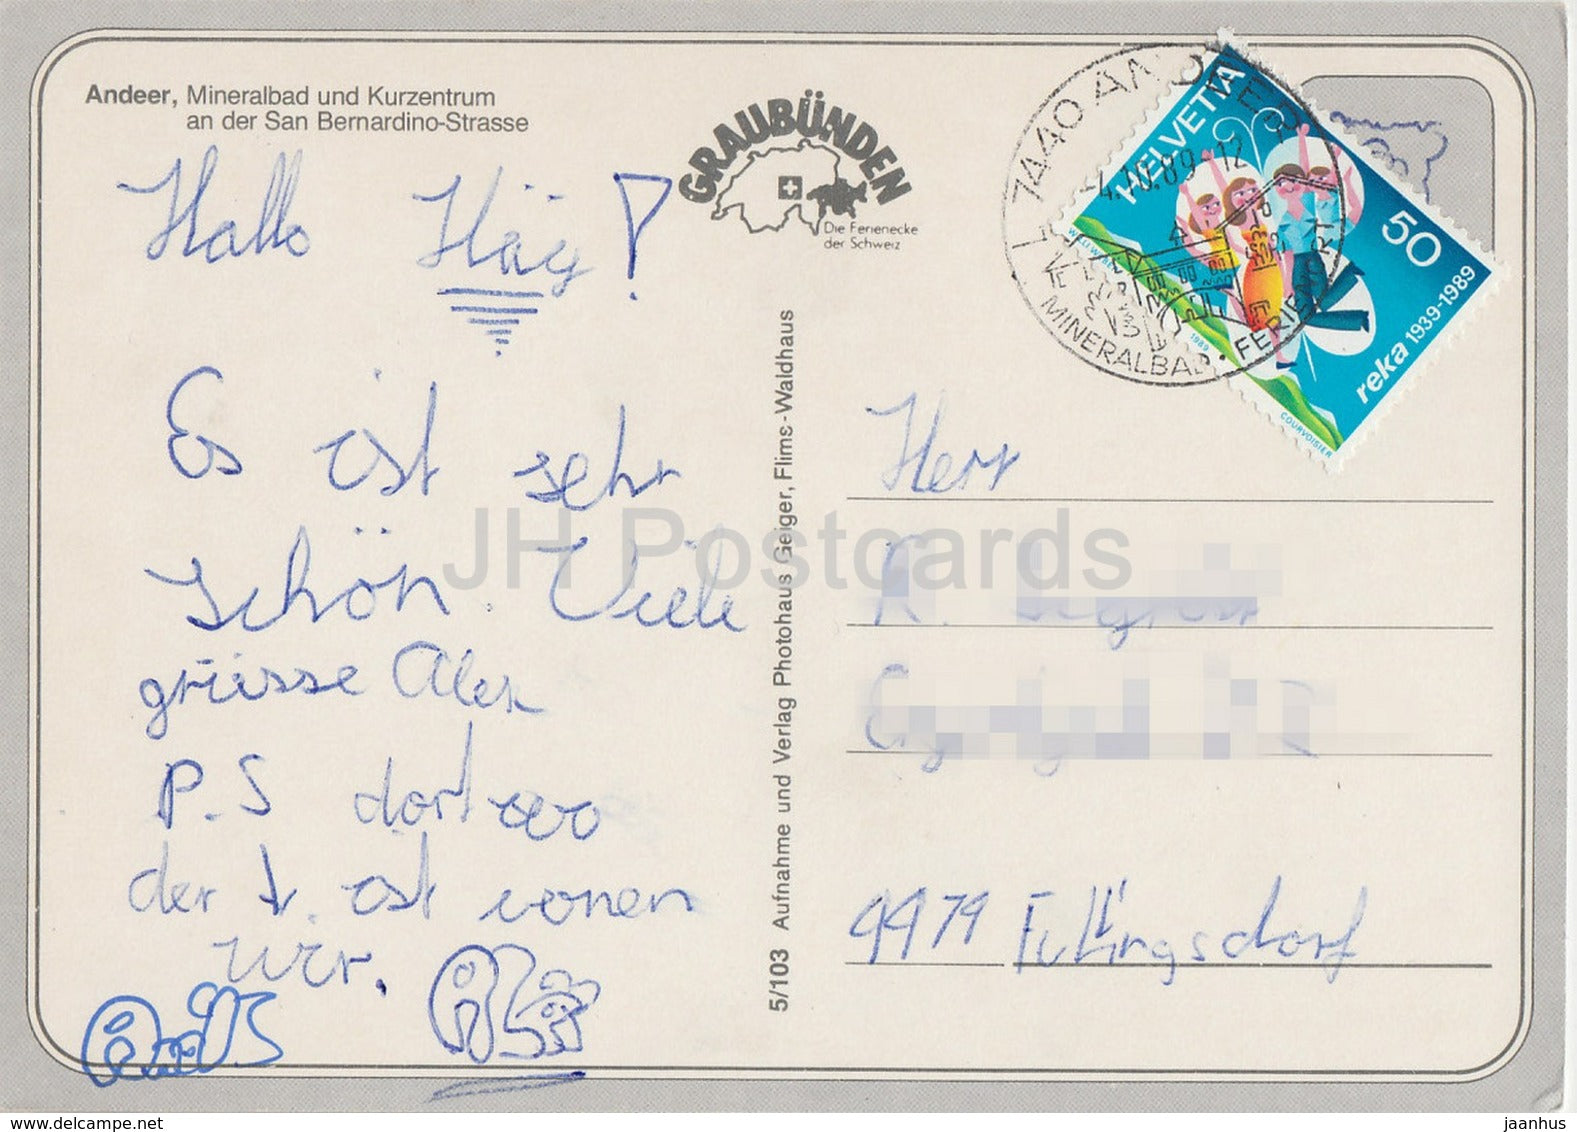 Andeer, Mineralbad und Kurzentrum
an der San Bernardino-Strasse
GRAUBÜNDEN
Die Ferienecke
der Schweiz
7440 ANDEER
4.10.89-12
MINERALBAD · FERIENORT
HELVETIA
50
reka 1939-1989
1989
COURVOISIER
Hallo Häg!
Es ist sehr
schön. Viele
grüsse Alex
P.S dort wo
der ist wonen
wir.
Aufnahme und Verlag Photohaus Geiger, Flims-Waldhaus
5/103
Herr
JH Postcards
Füllingsdorf
www.delcampe.net
jaanhus